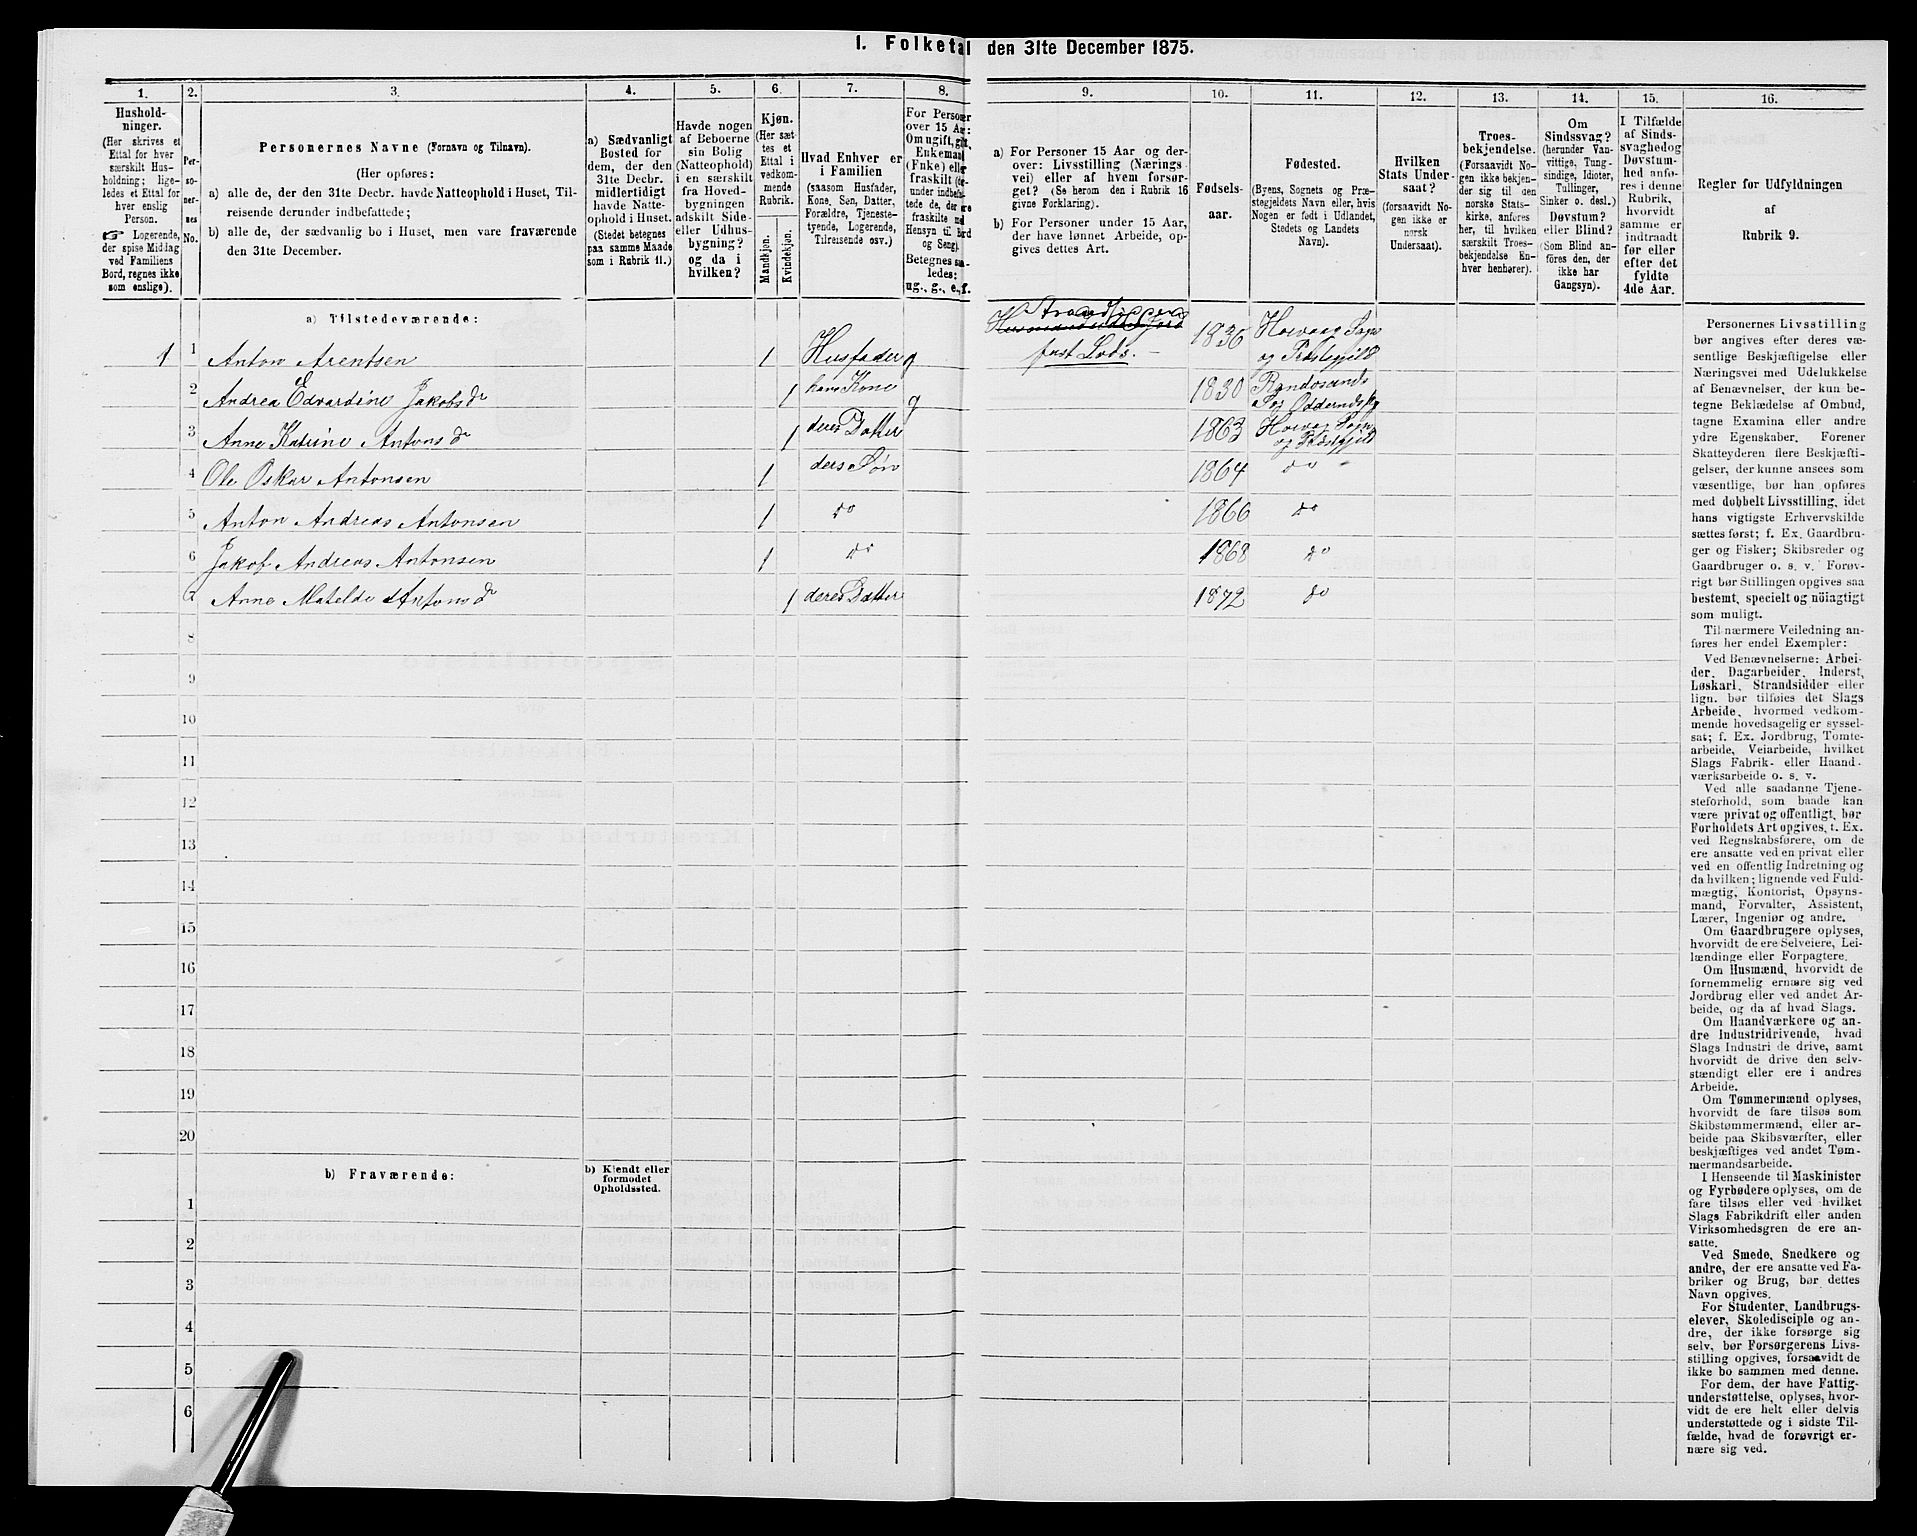 I. Folketal den 31te December 1875.
1.
2.
3.
4.
5.
6.
7.
8.
9.
10.
11.
12.
13.
14.
15.
16.
Hushold-
ninger.
(Her skrives et
Ettal for hver
særskilt Hus-
holdning; lige-
ledes et Ettal for
hver enslig
Person.
☞ Logerende,
der spise Middag
ved Familiens
Bord, regnes ikke
som enslige).
Per-
so-
ner-
nes
No.
Personernes Navne (Fornavn og Tilnavn).
(Her opføres:
a) alle de, der den 31te Decbr. havde Natteophold i Huset, Til-
reisende derunder indbefattede;
b) alle de, der sædvanlig bo i Huset, men vare fraværende
den 31te December.
a) Sædvanligt
Bosted for
dem, der den
31te Decbr.
midlertidigt
havde Natte-
ophold i Huset.
(Stedet betegnes
paa samme Maade
som i Rubrik 11.)
Havde nogen
af Beboerne
sin Bolig
(Natteophold)
i en særskilt
fra Hoved-
bygningen
adskilt Side-
eller Udhus-
bygning?
og da i
hvilken?
Kjøn.
(Her sæt-
tes et
Ettal i
vedkom-
mende
Rubrik.
Mandkjøn.
Kvindekjøn.
Hvad Enhver er
i Familien
(saasom Husfader,
Kone, Søn, Datter,
Forældre, Tjeneste-
tyende, Logerende,
Tilreisende osv.)
For Personer
over 15 Aar:
Om ugift, gift,
Enkemand
(Enke) eller
fraskilt
betegnes saa-
ledes:
ug., g., e., f.
a) For Personer 15 Aar og der-
over: Livsstilling (Nærings-
vei) eller af hvem forsør-
get? (Se herom den i Rubrik 16
givne Forklaring).
b) For Personer under 15 Aar,
der have lønnet Arbeide, op-
gives dettes Art.
Fødsels-
aar.
Fødested.
(Byens, Sognets og Præ-
stegjeldets Navn eller, hvis
Nogen er født i Udlandet,
Stedets og Landets
Navn).
Hvilken
Stats Under-
saat?
(forsaavidt No-
gen ikke er
norsk
Undersaat).
Troes-
bekjendelse.
(Forsaavidt No-
gen ikke bekjen-
der sig til den
norske Stats-
kirke, anføres
her, til hvilken
særskilt Troes-
bekjendelse En-
hver henhører).
Om
Sindssvag?
(herunder Van-
vittige, Tung-
sindige, Idioter,
Tullinger,
Sinker o. desl.)
Døvstum?
eller Blind?
(Som Blind an-
føres den, der
ikke har
Gangsyn).
I Tilfælde
af Sinds-
svaghed og
Døvstum-
hed anfø-
res i denne
Rubrik,
hvorvidt
samme er
indtraadt
før eller
efter det
fyldte
4de Aar.
Regler for Udfyldningen
af
Rubrik 9.
a) Tilstedeværende:
1 1 Anton Arentsen 1 Husfader g Strandsidder fast Lods. 1836 Høivaag Sogn og Præstegjeld
2 Andrea Edvardine Jakobsdr 1 hans Kone g 1830 Randøsunds Sogn Oddernes
3 Anne Katrine Antonsdr 1 deres Datter 1863 Høivaag Sogn og Præstegjeld
4 Ole Oskar Antonsen 1 ders Søn 1864 do
5 Anton Andreas Antonsen 1 do 1866 do
6 Jakob Andreas Antonsen 1 do 1868 do
7 Anne Matelde Antonsdr 1 deres Datter 1872 do
8
9
10
11
12
13
14
15
16
17
18
19
20
b) Fraværende:
b) Kjendt eller
formodet
Opholdssted.
1
2
3
4
5
6
Personernes Livsstilling
bør angives efter deres væ-
sentlige Beskjæftigelse eller
Næringsvei med Udelukkelse
af Benævnelser, der kun be-
tegne Beklædelse af Ombud,
tagne Examina eller andre
ydre Egenskaber. Forener
Skatteyderen flere Beskjæfti-
gelser, der kunne ansees som
væsentlige, bør han opføres
med dobbelt Livsstilling, idet
hans vigtigste Erhvervskilde
sættes først; f. Ex. Gaardbru-
ger og Fisker; Skibsreder og
Gaardbruger o. s. v. Forøv-
rigt bør Stillingen opgives saa
bestemt, specielt og nøiagtigt
som muligt.
Til nærmere Veiledning an-
føres her endel Exempler:
Ved Benævnelserne: Arbei-
der, Dagarbeider, Inderst,
Løskarl, Strandsidder eller
lign. bør tilføies det Slags
Arbeide, hvormed vedkom-
mende hovedsagelig er syssel-
sat; f. Ex. Jordbrug, Tomte-
arbeide, Veiarbeide, hvilket
Slags Fabrik- eller Haand-
værksarbeide o. s. v.
Ved alle saadanne Tjene-
steforhold, som baade kan
være privat og offentligt, bør
Forholdets Art opgives, t. Ex.
ved Regnskabsførere, om de
ere ansatte ved en privat eller
ved en offentlig Indretning og
da hvilken; lignende ved Fuld-
mægtig, Kontorist, Opsyns-
mand, Forvalter, Assistent,
Lærer, Ingeniør og andre.
Om Gaardbrugere oplyses,
hvorvidt de ere Selveiere, Lei-
lændinge eller Forpagtere.
Om Husmænd, hvorvidt de
fornemmelig ernære sig ved
Jordbrug eller ved andet Ar-
beide, og da af hvad Slags.
Om Haandværkere og an-
dre Industridrivende, hvad
Slags Industri de drive, samt
hvorvidt de drive den selv-
stændigt eller ere i andres
Arbeide.
Om Tømmermænd oplyses,
hvorvidt de fare tilsøs som
Skibstømmermænd, eller ar-
beide paa Skibsværfter, eller
beskjæftiges ved andet Tøm-
mermandsarbeide.
I Henseende til Maskinister
og Fyrbødere oplyses, om de
fare tilsøs eller ved hvilket
Slags Fabrikdrift eller anden
Virksomhedsgren de ere an-
satte.
Ved Smede, Snedkere og
andre, der ere ansatte ved Fa-
briker og Brug, bør dettes
Navn opgives.
For Studenter, Landbrugs-
elever, Skoledisciple og an-
dre, der ikke forsørge sig
selv, bør Forsørgerens Livs-
stilling opgives, forsaavidt de
ikke bo sammen med denne.
For dem, der have Fattig-
understøttelse, oplyses, hvor-
vidt de ere helt eller delvis
understøttede og i sidste Til-
fælde, hvad de forøvrigt er-
nære sig ved.